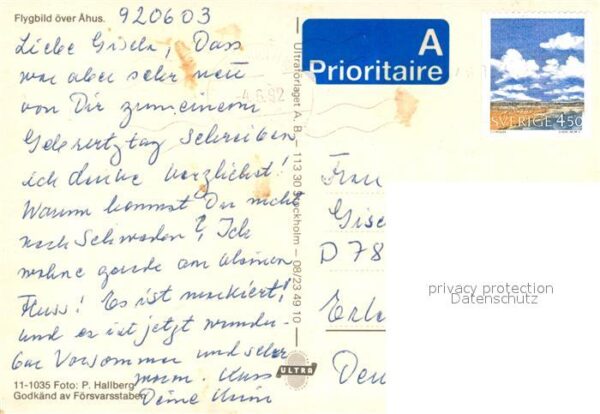 Flygbild över Åhus.
920603
Liebe Gisela, Dass
war aber sehr nett
von Dir zu meinem
Geburtztag Schreiben
ich danke herzlichst!
Warum kommst Du nicht
nach Schweden? Ich
wohne gerade am kleinen
Fluss! Es ist markiert!
und es ist jetzt wunder-
bar Vorsommer und sehr
warm. Kuss
Deine
11-1035 Foto: P. Hallberg
Godkänd av Försvarsstaben
Ultraförlaget A. B. – 113 30 Stockholm – 08/23 49 10
ULTRA
A
Prioritaire
-4.6.92
SVERIGE 450
Frau
Gise
D 78
Erl
Deu
privacy protection
Datenschutz